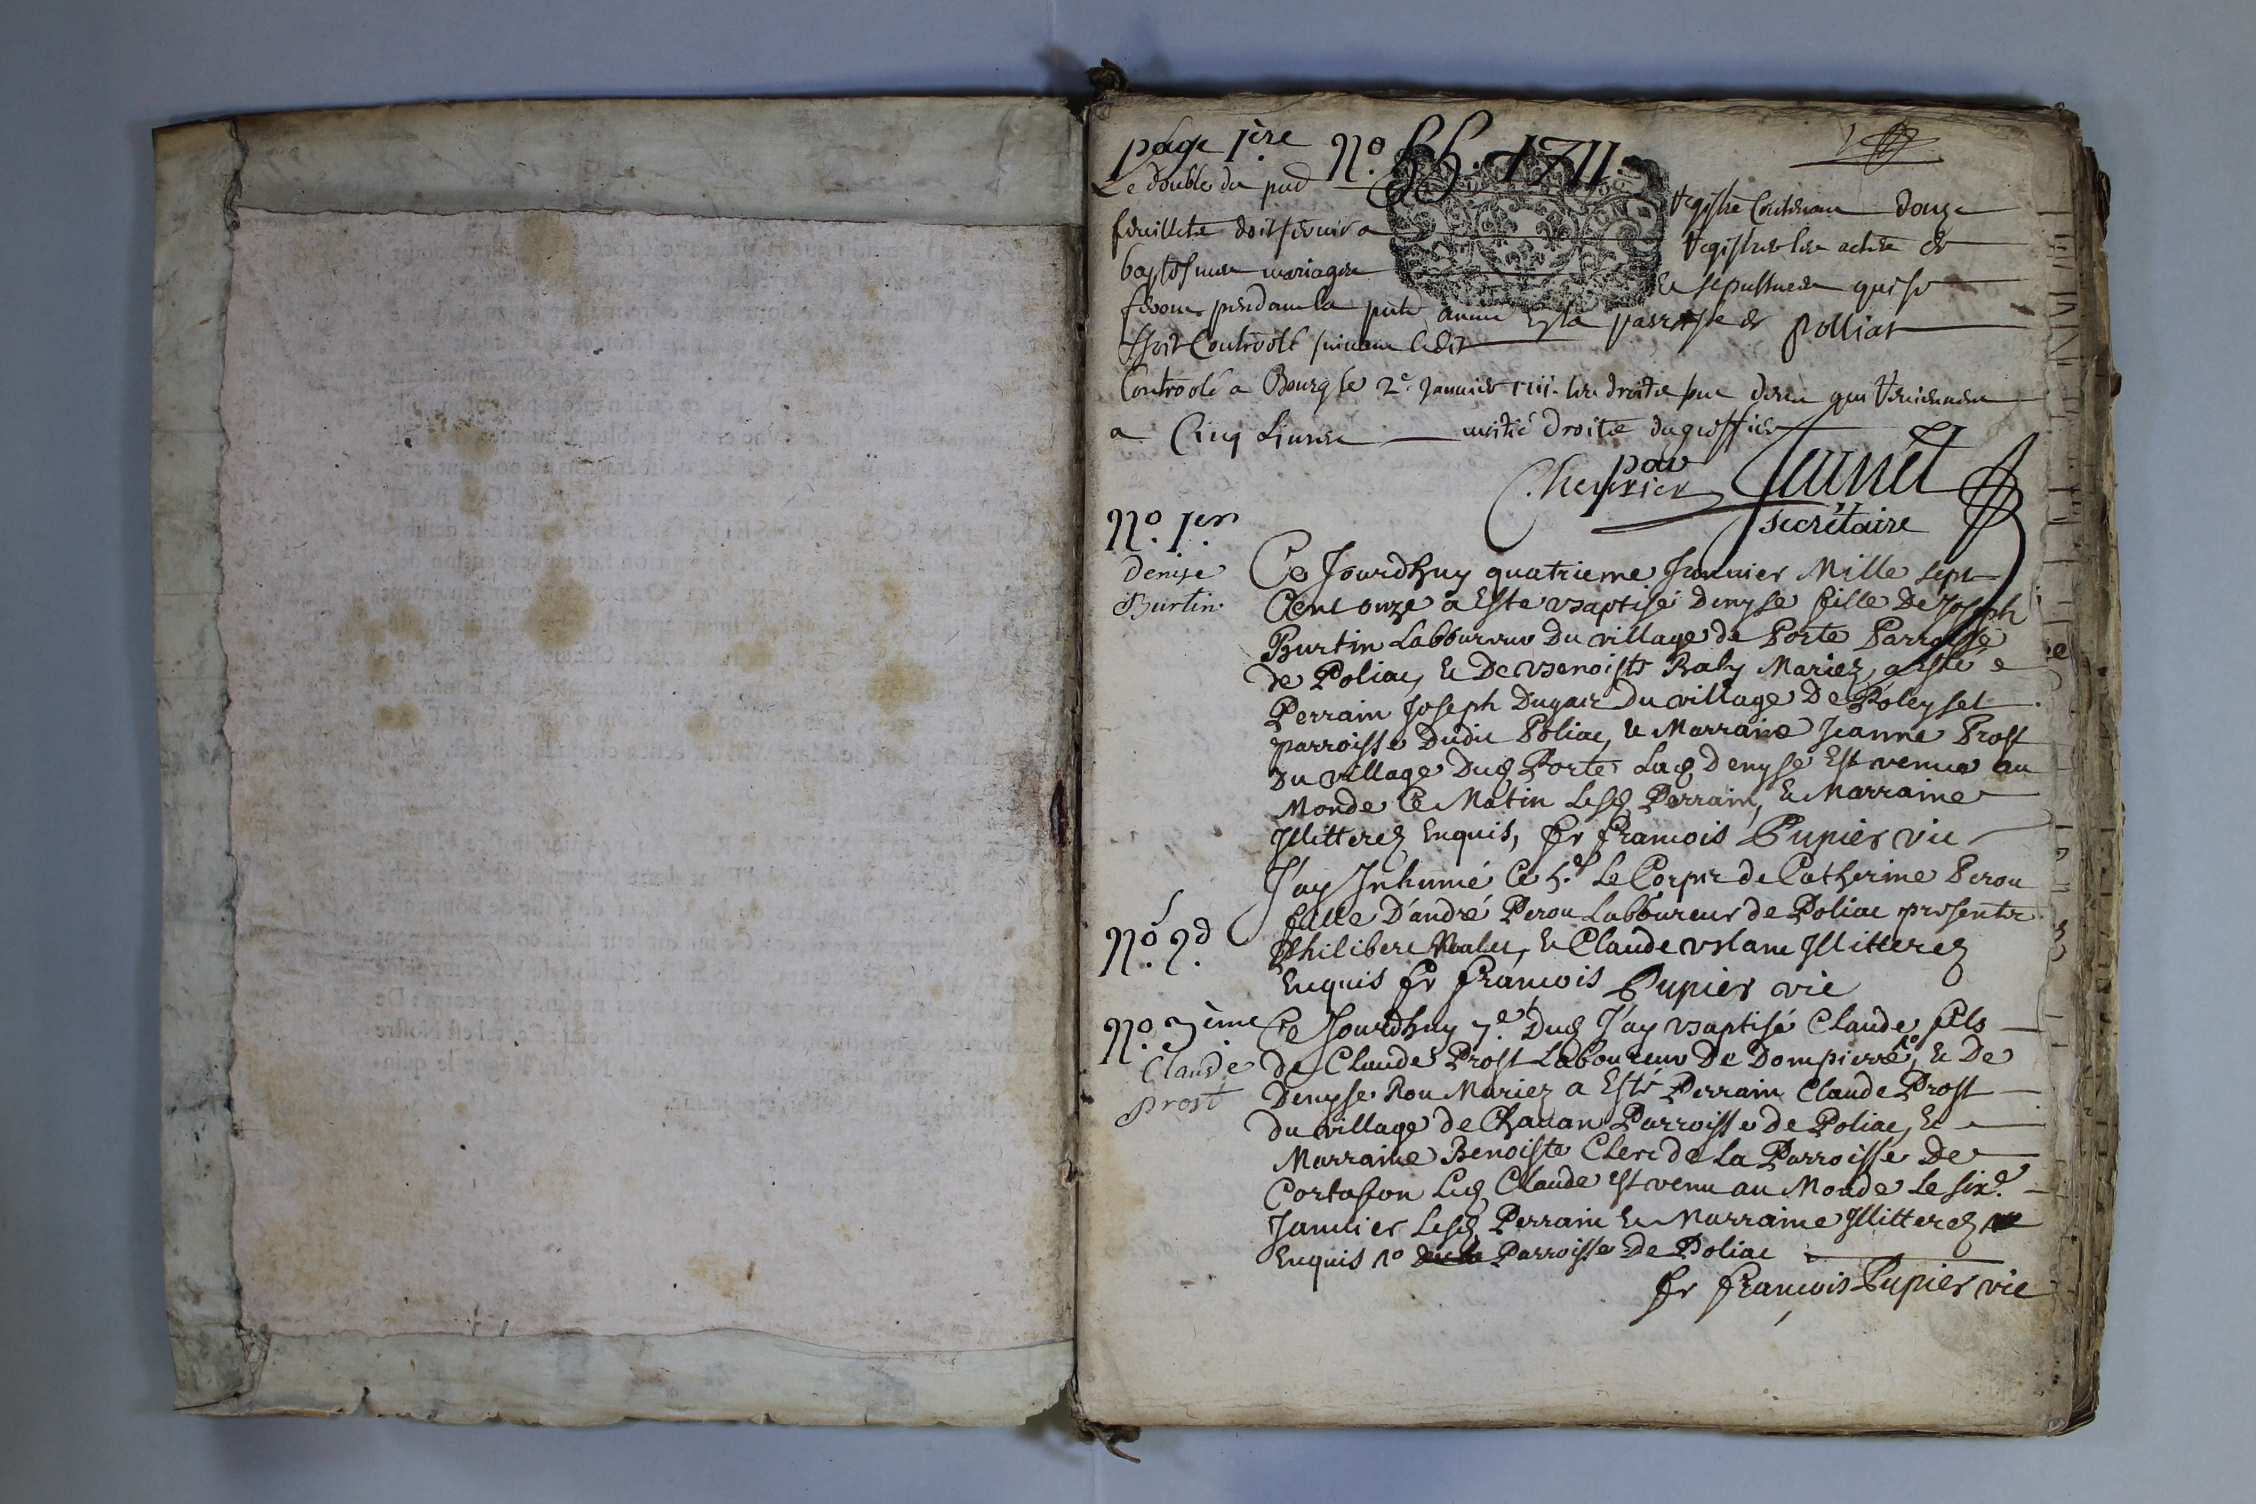 page 1ère n.º 55. 1711.
Le double du pnt registre Contenant douze
feuillets doit servir a registrer les actes de
baptesmes mariages et sepultures qui se
feront pendant la pnte année En la parroisse de Polliat
Contrôlé suivant ledit
Controlé a Bourg le 2e. Janvier 1711. les droits qui reviennent
a Cinq Livres moitié droits du greffier
par
Chevrier
secrétaire
N.º 1.er
Denise
Burtin.
Ce Jourdhuy quatrieme Januier Mille sept
Cent onze a Esté baptisé Denyse fille De Joseph
Burtin Laboureur Du village de Porte Parroisse
de Poliac, & De Benoiste Raby Mariez, a esté
Perrain Joseph Dugair Du village De Poleyset
parroisse Dudit Poliac, & Marraine Jeanne Prost
Du village Dud Porte Lad Denyse Est venue au
Monde Ce Matin Lesd Perrain, & Marraine
Illitterez Enquis, fr françois Pupier vic
N.º 2.d
J'ay Inhumé Ce 5.e Le Corps de Catherine Perou
fille D'andré Perou Laboureur de Poliac presents
Philibert & Claude Illitterez
Enquis fr françois Pupier vic
N.º 3ème
Claude
Prost
Ce Jourdhuy 7.e Dud J'ay baptisé Claude fils
de Claude Prost Laboureur De Dompierre, & De
Denyse Rou Mariez a Esté Perrain Claude Prost
du village de Chavan Parroisse de Poliac, &
Marraine Benoiste Clerc de la Parroisse De
Cortason Led Claude est venu au Monde Le six.e
Januier Lesd Perrain & Marraine Illitterez
Enquis Parroisse De Poliac
fr françois Pupier vic